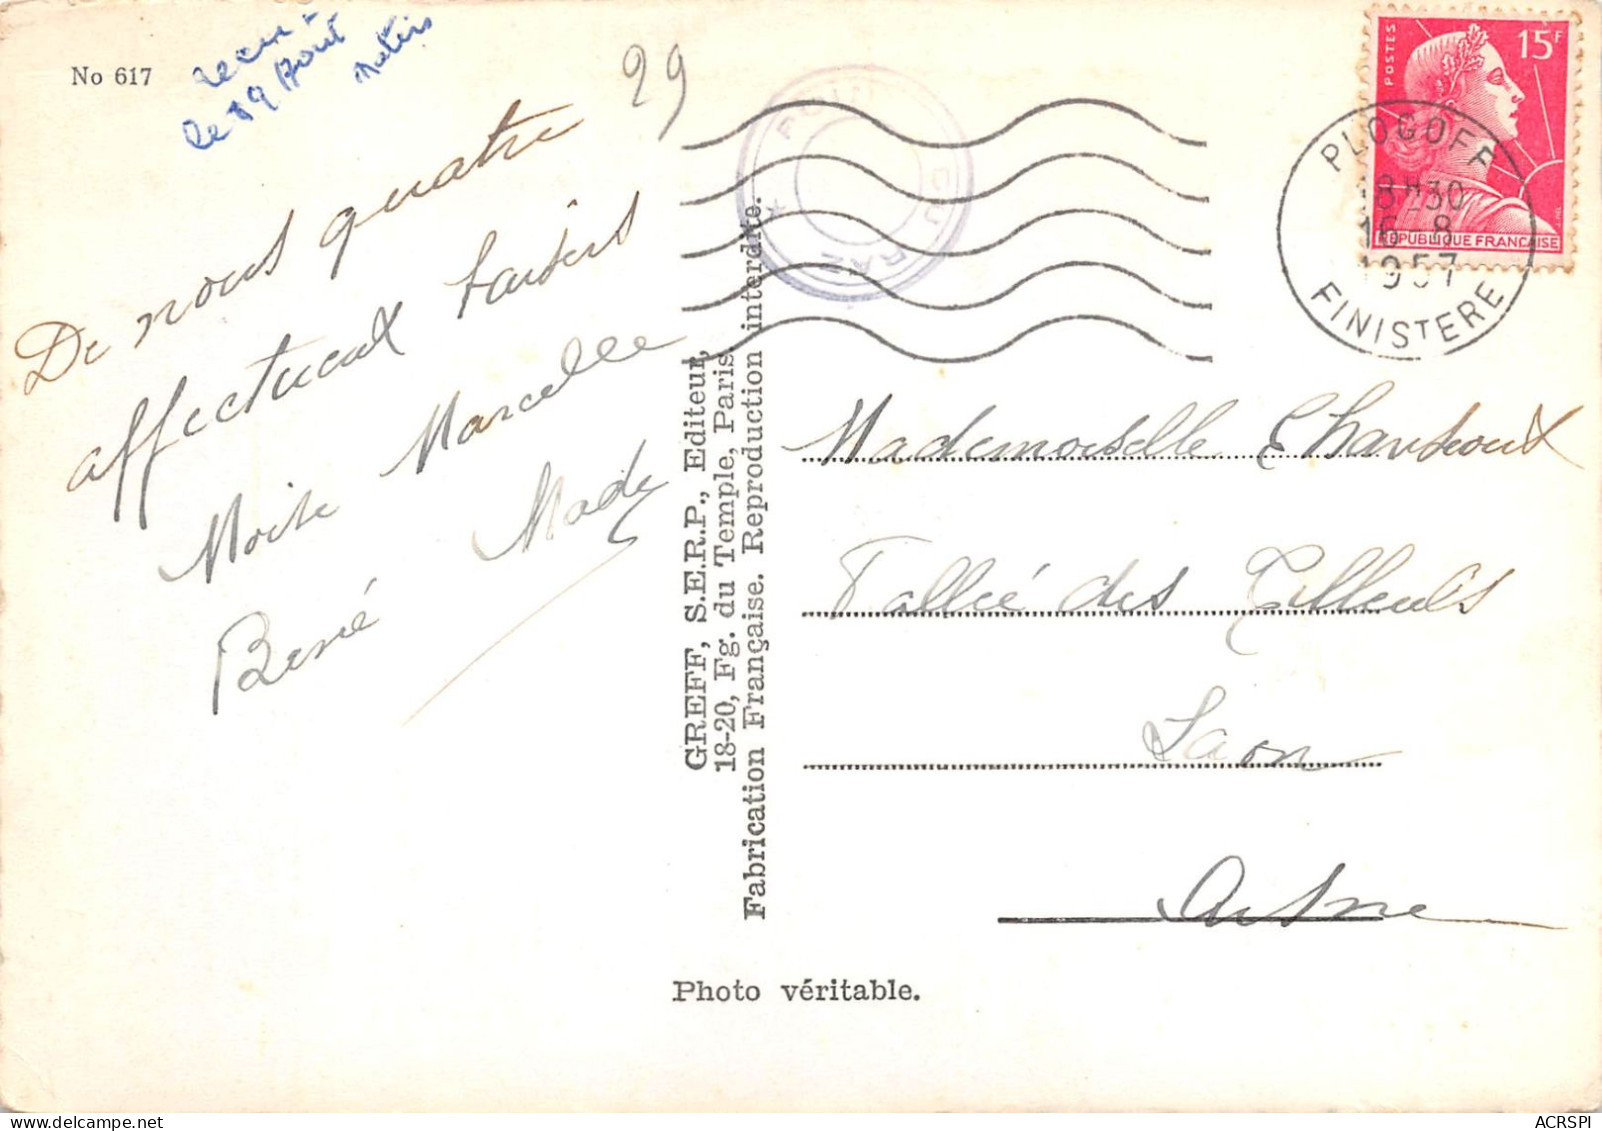 No 617
recu
le 19 Août
matin
29
De nous quatre
affectueux baisers
Marcelle
René Mady
POINTE DU RAZ
GREFF, S.E.R.P., Editeur,
18-20, Fg. du Temple, Paris.
Fabrication Française. Reproduction interdite.
Photo véritable.
POSTES 15F
REPUBLIQUE FRANÇAISE
PLOGOFF
18H30
16-8
1957
FINISTERE
Mademoiselle
7 allée des Tilleuls
Laon
Aisne
ACRSPI